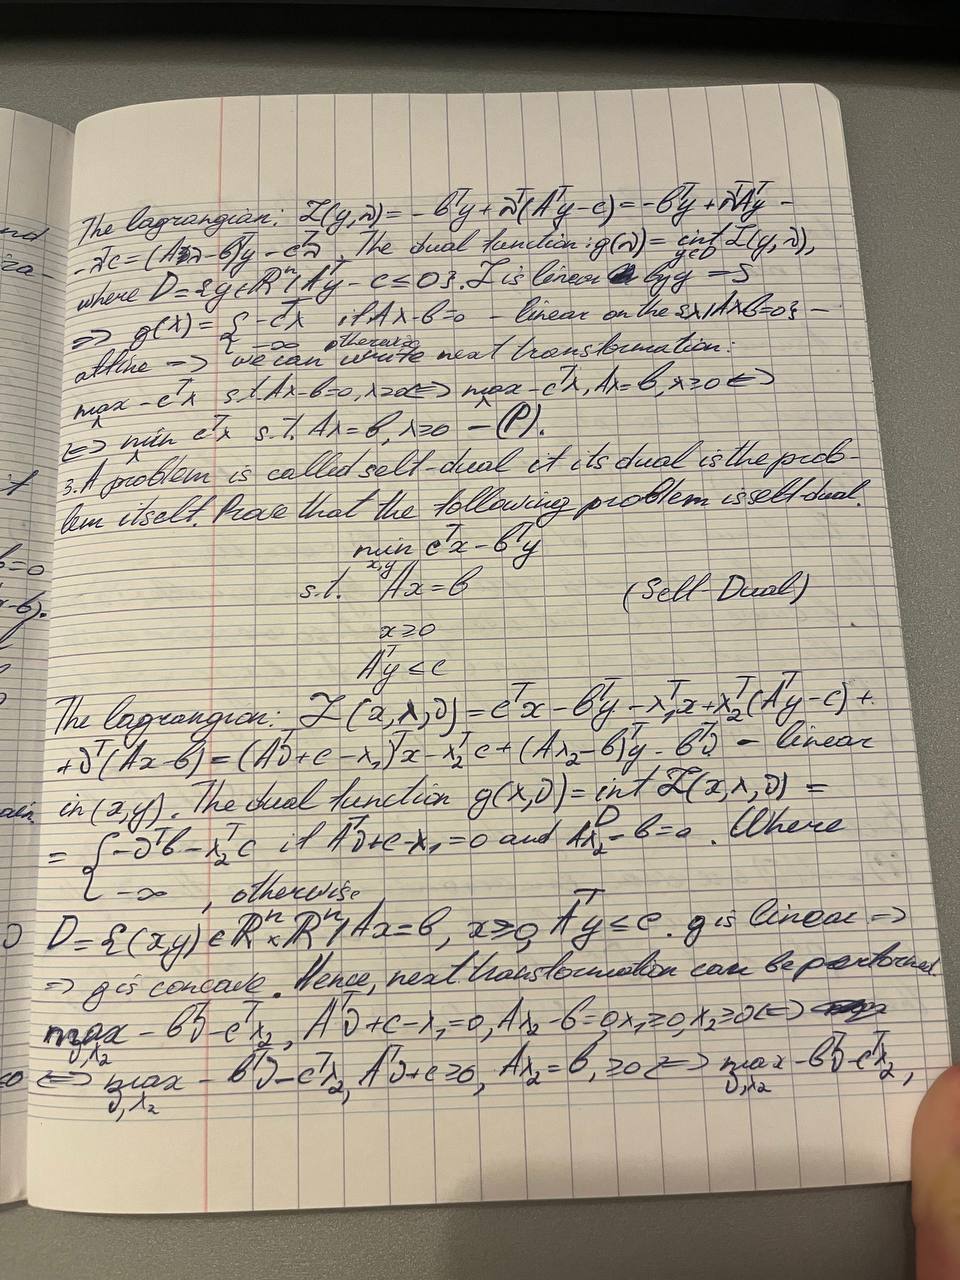 The lagrangian: L(y,λ) = -bᵀy + λᵀ(Aᵀy-c) = -bᵀy + λᵀAᵀy -
- λᵀc = (Aλ-b)ᵀy - cᵀλ. The dual function: g(λ) = inf L(y,λ),
y∈D
where D = {y∈ℝⁿ | Aᵀy - c ≤ 0}. L is linear by y =>
=> g(λ) = { -cᵀλ if Aλ-b=0 - linear on the {λ|Aλ-b=0} -
-∞ otherwise
affine => we can write next transformation:
max -cᵀλ s.t. Aλ-b=0, λ≥0 <=> max -cᵀλ, Aλ=b, λ≥0 <=>
λ λ
<=> min cᵀλ s.t. Aλ=b, λ≥0 - (P).
λ
3. A problem is called self-dual if its dual is the prob-
lem itself. Prove that the following problem is self-dual.
min cᵀx - bᵀy
x,y
s.t. Ax=b (Self-Dual)
x≥0
Aᵀy ≤ c
The lagrangian: L(x,λ,ν) = cᵀx - bᵀy - λ₁ᵀx + λ₂ᵀ(Aᵀy-c) +
+νᵀ(Ax-b) = (Aᵀν+c-λ₁)ᵀx - λ₂ᵀc + (Aλ₂-b)ᵀy - bᵀν - linear
in (x,y). The dual function g(λ,ν) = inf L(x,λ,ν) =
D
= { -νᵀb - λ₂ᵀc if Aᵀν+c-λ₁=0 and Aλ₂-b=0. Where
-∞, otherwise
D = {(x,y) ∈ ℝⁿ×ℝⁿ | Ax=b, x≥0, Aᵀy≤c. g is linear =>
=> g is concave. Hence, next transformation can be performed
max -bᵀν-cᵀλ₂, Aᵀν+c-λ₁=0, Aλ₂-b=0, λ₁≥0, λ₂≥0 <=>
ν,λ₂
<=> max -bᵀν-cᵀλ₂, Aᵀν+c≥0, Aλ₂=b, ≥0 <=> max -bᵀν-cᵀλ₂,
ν,λ₂ ν,λ₂